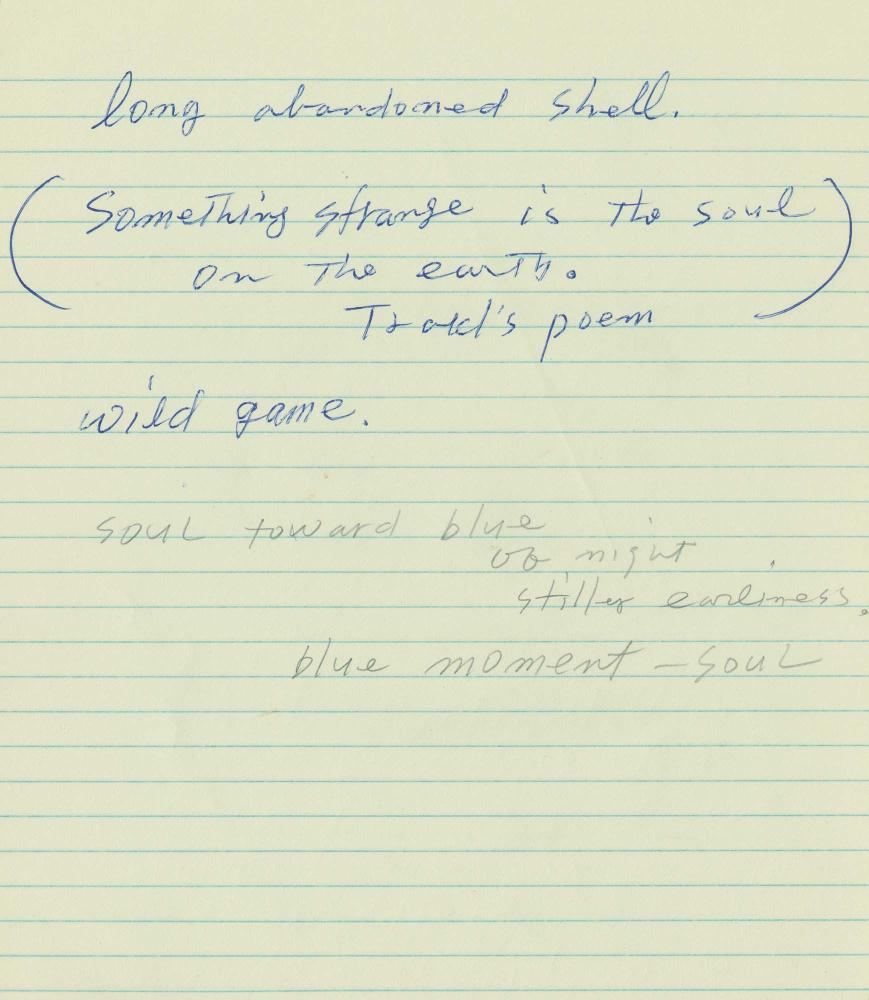 long abandoned shell.
(Something strange is the soul
on the earth.
Trakl's poem)
wild game.
soul toward blue
of night
stiller earliness.
blue moment - soul